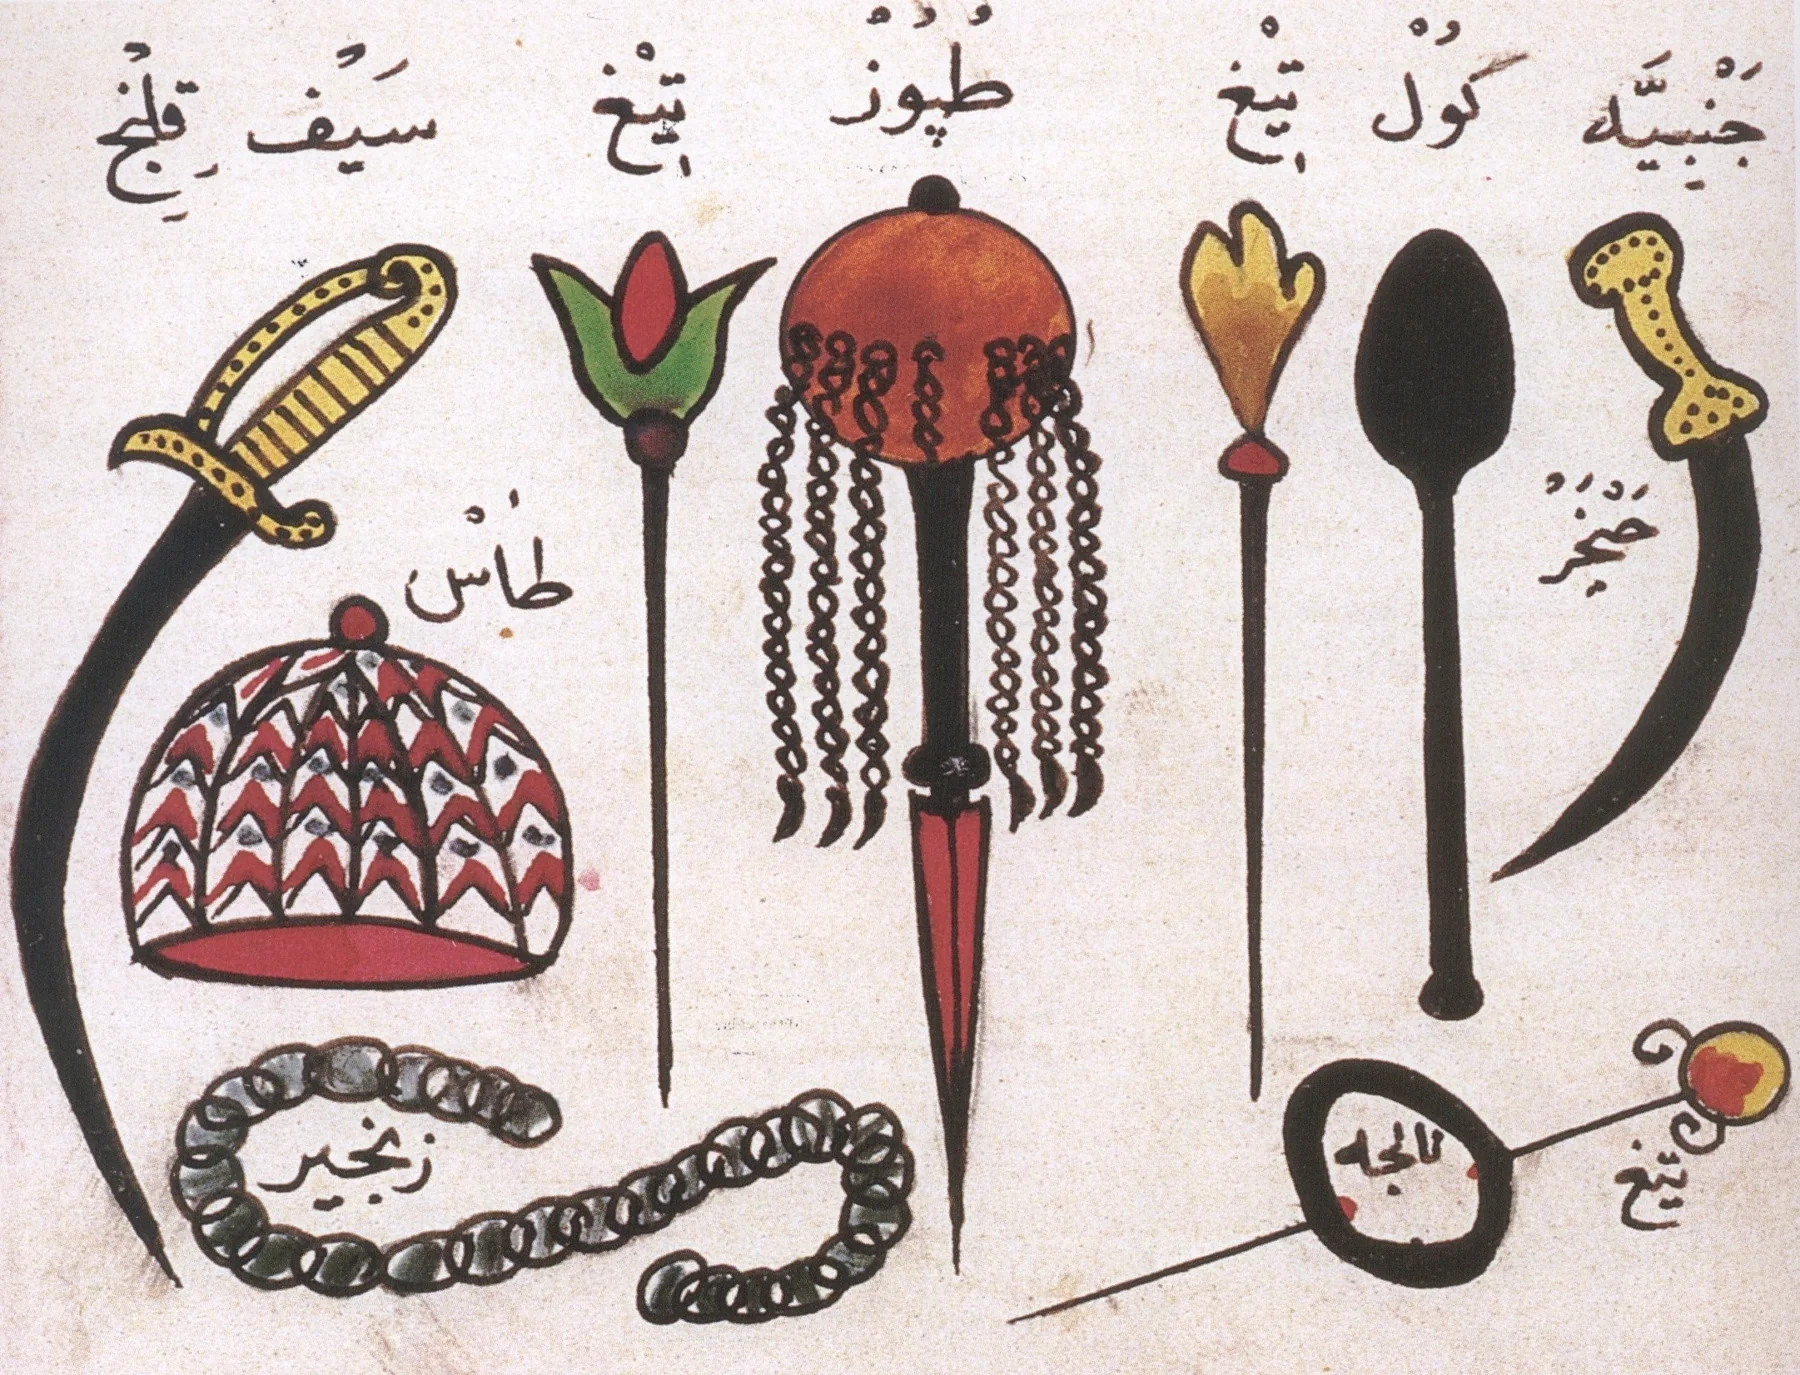 جَنْبِيَّه كُوْل تِيْغ طُپُوُزْ تِيْغ سَيُف قِلِنْج
خَنْجَرْ
طَاسْ
زنجير
تيغ